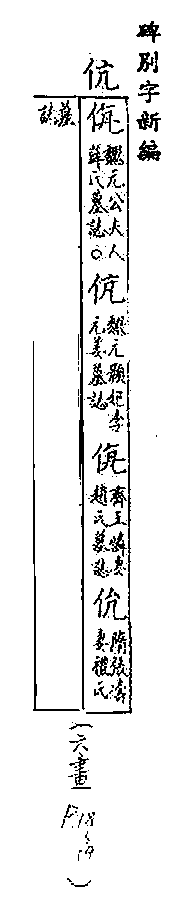 碑別字新編
伉
魏元公夫人
薛氏墓誌○
魏元顯妃李
元姜墓誌
齊王憐妻
趙氏墓誌
伉
隋張濤
妻禮氏
墓
誌
(六畫
P.18
~19)